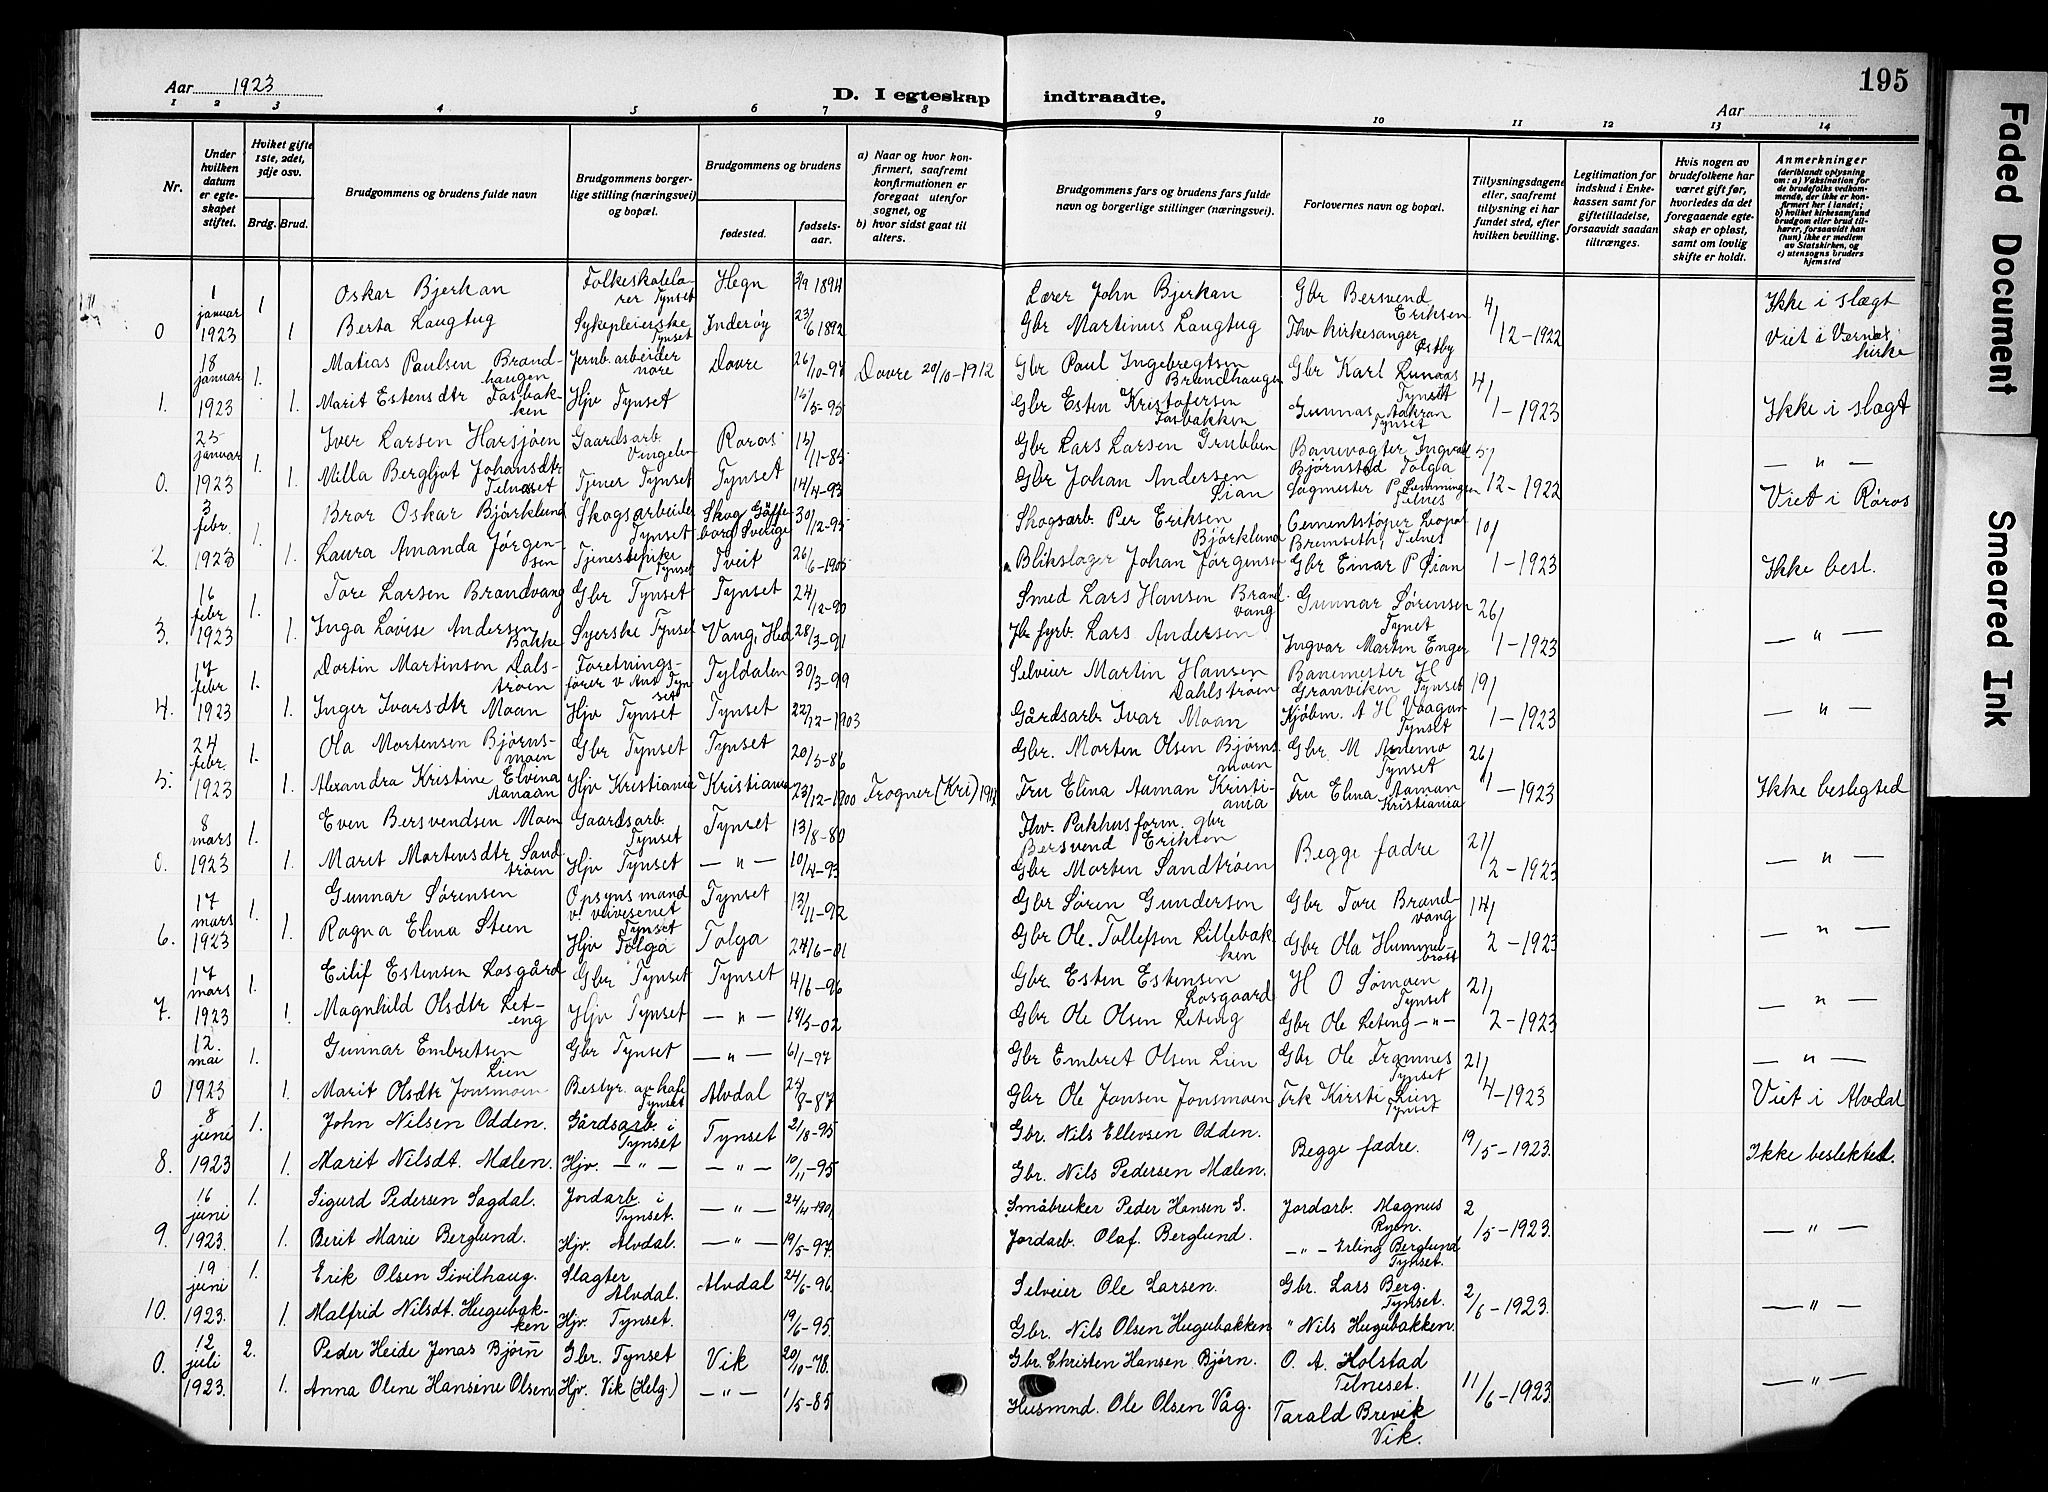 195
Aar 1923
D. I egteskap indtraadte.
Aar
1 2 3 4 5 6 7 8 9 10 11 12 13 14
Nr.
Under hvilken datum er egteskapet stiftet.
Hviket gifte 1ste, 2det, 3dje osv.
Brdg. Brud.
Brudgommens og brudens fulde navn
Brudgommens borgerlige stilling (næringsvei) og bopæl.
Brudgommens og brudens
fødested.
fødselsaar.
a) Naar og hvor konfirmert, saafremt konfirmationen er foregaat utenfor sognet, og
b) hvor sidst gaat til alters.
Brudgommens fars og brudens fars fulde navn og borgerlige stillinger (næringsvei).
Forlovernes navn og bopæl.
Tillysningsdagene eller, saafremt tillysning ei har fundet sted, efter hvilken bevilling.
Legitimation for indskud i Enkekassen samt for giftetilladelse, forsaavidt saadan tiltrænges.
Hvis nogen av brudefolkene har været gift før, hvorledes da det foregaaende egteskap er opløst, samt om lovlig skifte er holdt.
Anmerkninger (deriblandt oplysning om: a) Vaksination for de brudefolks vedkommende, der ikke er konfirmert her i landet; b) hvilket kirkesamfund brudgom eller brud tilhører, forsaavidt han (hun) ikke er medlem av Statskirken, og c) utensogns bruders hjemsted
1 januar 1. Oskar Bjerkan Folkeskolelærer Tynset Hegn 3/9 1894 Lærer John Bjerkan Gbr Bersvend Eriksen 4/ Ikke i slægt
0 1923 1 Berta Laugtug Sykepleierske Tynset Inderøy 23/6 1892 Gbr Martinus Laugtug Fhv Kirkesanger Østby 12-1922 Viet i Vernes kirke
18 januar 1. Matias Paulsen Brandhaugen Jernb. arbeider Dovre 26/10-97 Dovre 20/10-1912 Gbr Paul Ingebregtsen Brandhaugen Gbr Karl Lunaas Tynset 4/
1. 1923 1. Marit Estensdtr Fasbakken Hjv Tynset 14/5-95 Gbr Esten Kristofersen Fasbakken Gunnar Aakran Tynset 1-1923 Ikke i slægt
25 januar 1. Iver Larsen Harsjøen Gaardsarb. Vingelen Røros 15/11-85 Gbr Lars Larsen Grubben Banevogter Ingvald Bjørnstad Tolga 5/ — " —
0. 1923 1. Milla Bergljot Johansdtr Telneset Tjener Tynset Tynset 14/4-93 Gbr Johan Andersen Øian Sagmester P Lemmingen Telnes 12-1922 Viet i Røros
3 febr. 1. Bror Oskar Bjørklund Skogsarbeider Tynset Skog Gäfleborg Sverige 30/12-95 Skogsarb. Per Eriksen Bjørklund Cementstøper Leopol Bremseth, Telnes 10/
2. 1923 1. Laura Amanda Jørgensen Tjenestepike Tynset Tveit 26/6-1905 Blikslager Johan Jørgensen Gbr Einar P Øian 1-1923 Ikke besl.
16 febr 1. Tore Larsen Brandvang Gbr Tynset Tynset 24/12-90 Smed Lars Hansen Brandvang Gunnar Sørensen Tynset 26/
3. 1923 1. Inga Lovise Andersen Bakke Syerske Tynset Vang, Hed 28/3-91 Jb fyrb. Lars Andersen Ingvar Martin Enger 1-1923 — " —
17 febr 1. Dortin Martinsen Dalstrøen Foretningsfører v Ant Tynset Tyldalen 30/3-99 Selveier Martin Hansen Dahlstrøen Banemester H Granviken Tynset 19/
4. 1923 1. Inger Ivarsdtr Moan Hjv Tynset Tynset 22/12-1903 Gårdsarb. Ivar Moan Kjøbm. A H Vaagan Tynset 1-1923 — " —
24 febr. 1. Ola Mortensen Bjørnsmoen Gbr Tynset Tynset 20/5-86 Gbr. Morten Olsen Bjørnsmoen Gbr M Aunemo Tynset 26/
5. 1923 1. Alexandra Kristine Elvina Aanaan Hjv Kristiania Kristiania 23/12-1900 Frogner (Kri) Fru Elina Aaman Kristiania Fru Elina Aaman Kristiania 1-1923 Ikke besligted
8 mars 1. Even Bersvendsen Moen Gaardsarb. Tynset Tynset 13/8-80 Fhv. Pakhusform. gbr Bersvend Eriksen Begge fædre 21/
0. 1923 1. Marit Mortensdtr Sandtrøen Hjv Tynset — " — 10/4-93 Gbr Morten Sandtrøen 2-1923 — " —
17 mars 1. Gunnar Sørensen Opsynsmand v. veivesenet Tynset Tynset 13/11-92 Gbr Søren Gundersen Gbr Tore Brandvang 14/
6. 1923 1. Ragna Elina Steen Hjv Tolga Tolga 24/6-01 Gbr Ole Tollefsen Lillebakken Gbr Ola Hummelbrott 2-1923 — " —
17 mars 1. Eilif Estensen Losgård Gbr Tynset Tynset 4/6-96 Gbr. Esten Estensen Losgaard H O Sømoen Tynset 21/
7. 1923 1. Magnhild Olsdtr Leteng Hjv Tynset — " — 18/5-02 Gbr Ole Olsen Leteng Gbr Ole Leteng — " — 2-1923 — " —
12. mai 1. Gunnar Embretsen Lien Gbr Tynset — " — 6/1-97 Gbr Embret Olsen Lien Gbr Ole Framnes Tynset 21/ — " —
0 1923 1. Marit Olsdtr Jonsmoen Bestyr. av kafe Tynset Alvdal 25/8-87 Gbr Ole Jonsen Jonsmoen Frk Kirsti Lien Tynset 4-1923 Viet i Alvdal
8 juni 1. John Nilsen Odden. Gårdsarb. i Tynset Tynset 21/8-95 Gbr. Nils Ellevsen Odden. Begge fædre. 19/5-1923. Ikke beslekted.
8. 1923 1. Marit Nilsdt. Mælen. Hjv. — " — — " — 10/11-95 Gbr. Nils Pedersen Mælen.
16 juni 1. Sigurd Pedersen Sagdal. Jordarb. i Tynset. — " — 24/4-1901 Småbruker Peder Hansen S. Jordarb. Magnus Ryen. 2
9. 1923. 1. Berit Marie Berglund. Hjv. Alvdal. — " — 19/5-97. Jordarb. Olaf. Berglund. — " — Erling Berglund Tynset. /5-1923. — " —
19 juni 1. Erik Olsen Sivilhaug. Slagter Alvdal. Alvdal 24/6-96. Selveier Ole Larsen. Gbr. Lars Berg. Tynset. 2
10. 1923. 1. Malfrid Nilsdt. Hugubakken Hjv. Tynset. 19/6-95. Gbr. Nils Olsen Hugubakken " Nils Hugubakken. /6-1923. — " —
12 juli 2. Peder Heide Jonas Bjørn Gbr. Tynset Vik 20/10-78. Gbr. Christen Hansen Bjørn. O. A. Holstad Telneset. 11/6-1923.
0. 1923. 1. Anna Oline Hansine Olsen Hjv. Vik (Helg.) — " — 1/5-85 Husmnd. Ole Olsen Våg. Tarald Brevik Vik. — " —
Faded Document
Smeared Ink